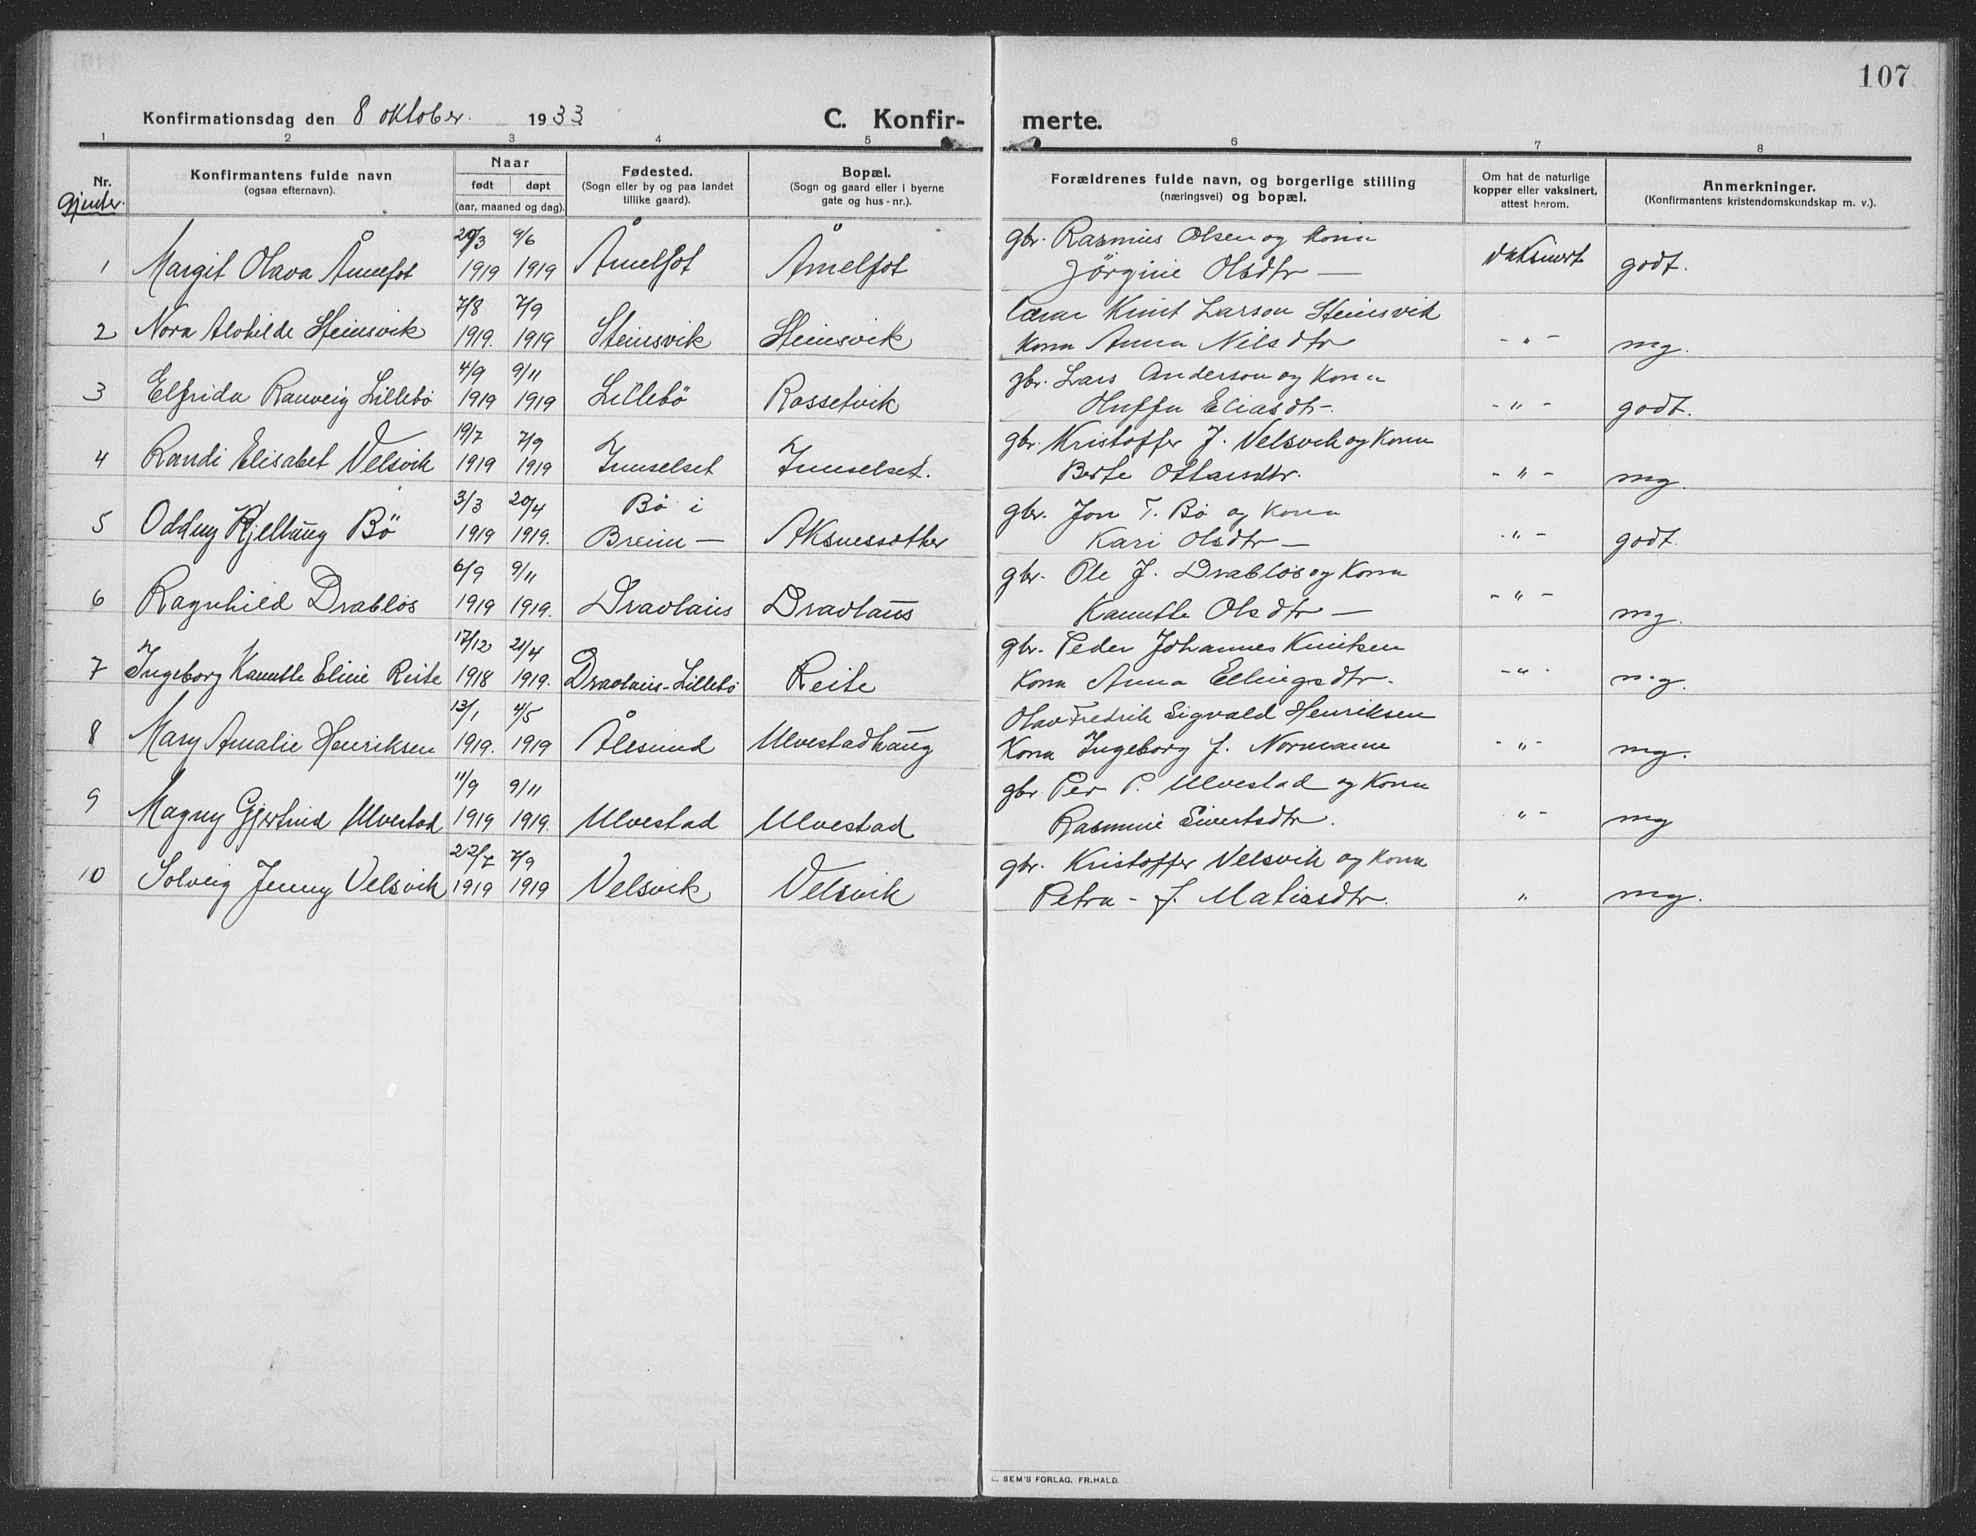 107
Konfirmationsdag den 8 oktober. 1933. C. Konfir- merte.
1 2 3 4 5 6 7 8
Nr. Konfirmantens fulde navn (ogsaa efternavn). Naar født døpt (aar, maaned og dag). Fødested. (Sogn eller by og paa landet tillike gaard). Bopæl. (Sogn og gaard eller i byerne gate og hus-nr.). Forældrenes fulde navn, og borgerlige stilling (næringsvei) og bopæl. Om hat de naturlige kopper eller vaksinert, attest herom. Anmerkninger. (Konfirmantens kristendomskundskap m. v.).
Gjenter.
20/3 9/6 gbr. Rasmus Olsen og Kona
1 Margit Olava Åmelfot 1919 1919 Åmelfot Åmelfot Jörgine Olsdtr — vaksinert godt.
7/8 7/9 Lærar Knut Larson Steinsvik
2 Nora Alvhilde Steinsvik 1919. 1919 Steinsvik Steinsvik Kona Anna Nilsdtr - " - mg.
4/9 9/11 gbr. Lars Anderson og Kona
3 Elfrida Ranveig Lillebö 1919 1919 Lillebö Rossetvik Eliasdtr. - " - godt.
19/7 7/9 gbr. Kristoffer J. Velsvik og Kona
4 Randi Elisabet Velsvik 1919 1919 Innselset Innselset. Berte Ottarsdtr. - " - mg.
3/3 20/4 Bö i gbr. Jon T. Bö og Kona
5 Oddny Kjellaug Bö 1919 1919. Breim — Aksnessæther Kari Olsdtr — - " - godt.
6/9 9/11 gbr. Ole J. Drabløs og Kona
6 Ragnhild Drabløs 1919 1919. Dravlaus Dravlaus Kanutte Olsdtr — - " - mg.
17/12 21/4 gbr. Peder Johannes Knutsen
7 Ingeborg Kanutte Eline Reite 1918 1919. Dravlaus-Lillebö Reite Kona Anna Ellingsdtr. - " - mg.
13/1 4/5 Olav Fredrik Sigvald Henriksen
8 Mary Amalie Henriksen 1919. 1919 Ålesund Ulvestadhaug Kona Ingeborg J. Normann - " - mg.
11/9 9/11 gbr. Per P. Ulvestad og Kona
9 Magny Gjertrud Ulvestad 1919 1919. Ulvestad Ulvestad Rasmine Sivertsdtr. " - mg
22/7 7/9 gbr. Kristoffer Velsvik og Kona
10 Solveig Jenny Velsvik 1919 1919 Velsvik Velsvik Petra - J. Matiasdtr. " mg.
SEM'S FORLAG, FR.HALD.